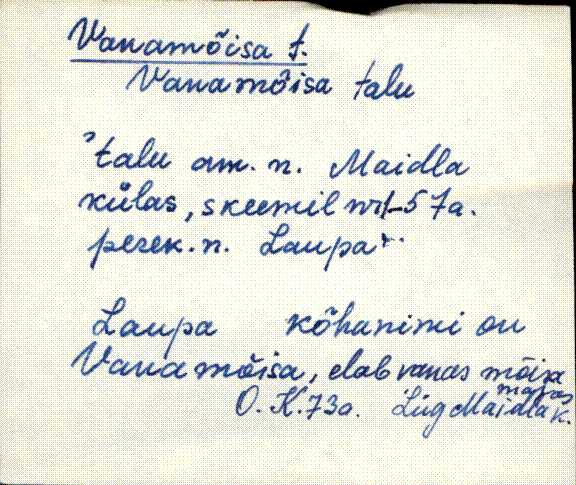 Vanamõisa t.
Vanamõisa talu
"talu am. n. Maidla
külas, skeemil nr 57a.
perek. n. Laupa".
Laupa kõhanimi on
Vanamõisa, elab vanas mõisa
majas
O. K. 73a. Lüg Maidla k.